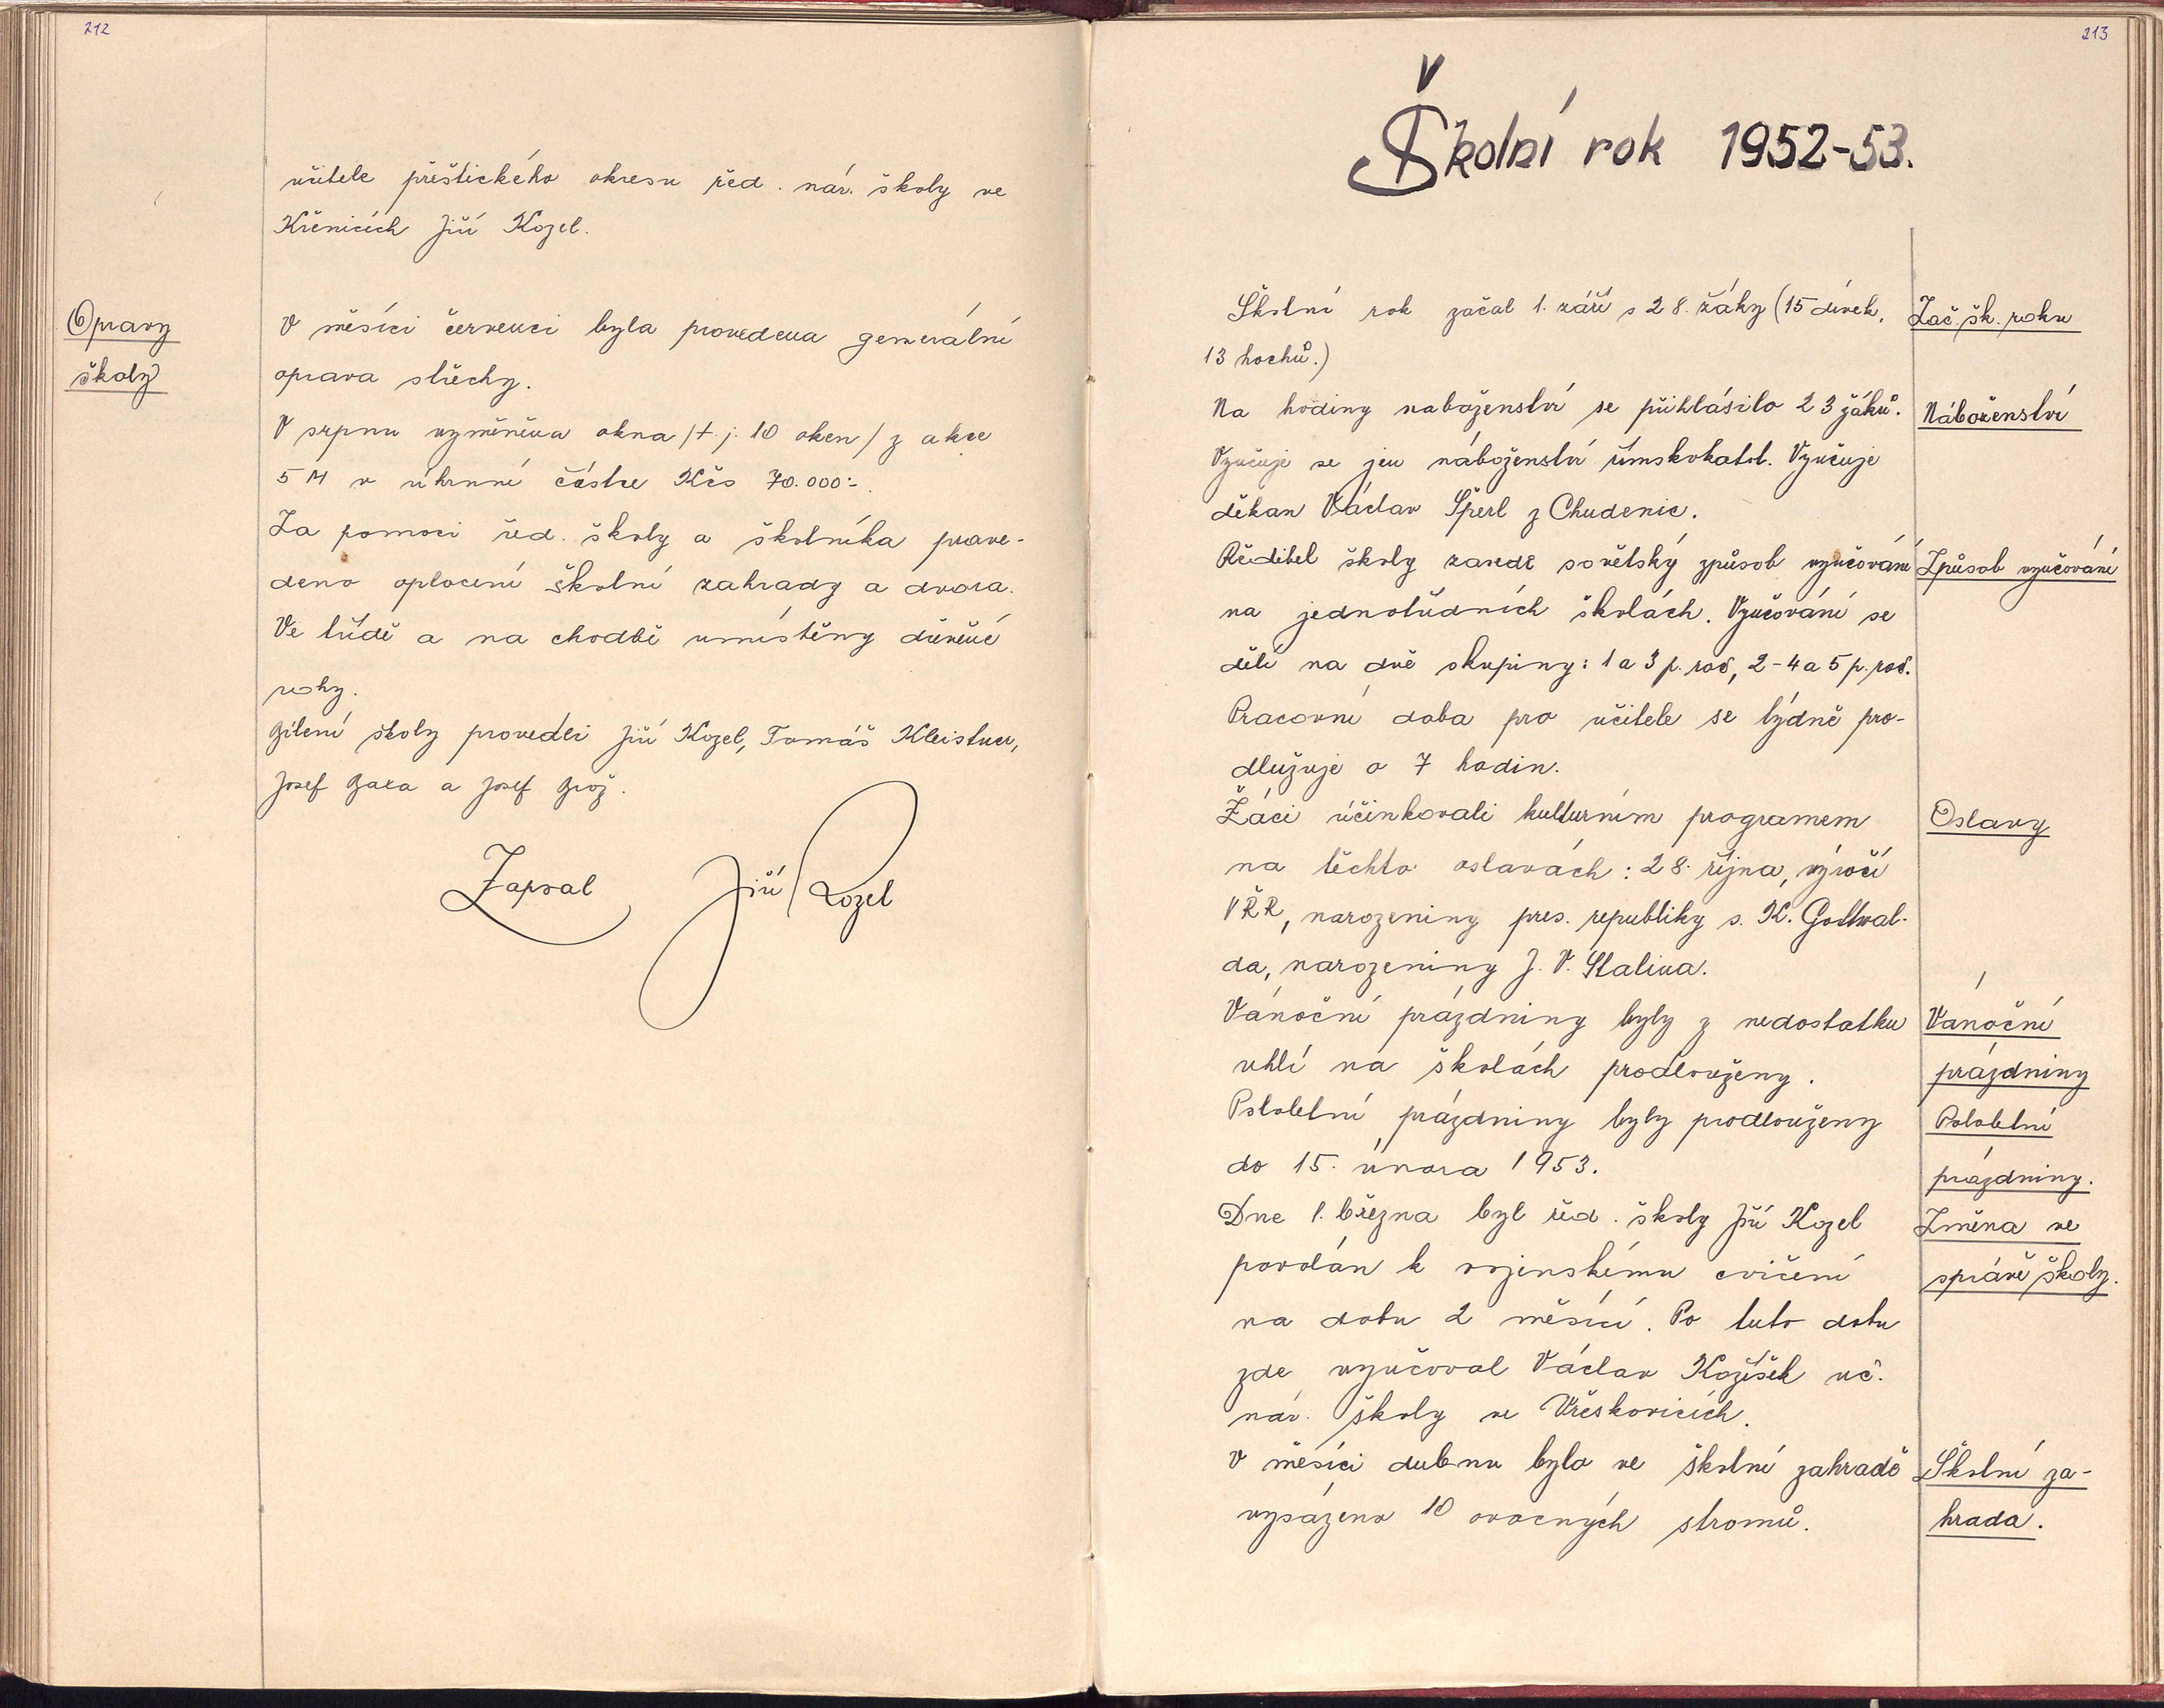 212
učitele přeštického okresu řed. nár. školy ve
Křenicích Jiří Kozel.
Opravy
školy
V měsíci červenci byla provedena generální
oprava střechy.
V srpnu vyměněna okna /t. j. 10 oken/ z akce
5 M v úhrnné částce Kčs 70.000:-.
Za pomoci řed. školy a školníka prove-
deno oplocení školní zahrady a dvora.
Ve třídě a na chodbě umístěny dřevěné
rohy.
Bílení školy provedli Jiří Kozel, Tomáš
Josef a Josef
Zapsal Jiří Kozel
213
Školní rok 1952-53.
Školní rok začal 1. září s 28. žáky (15 dívek,
13 hochů.)
Zač. šk. roku
Na hodiny naboženství se přihlásilo 23 žáků.
Náboženství
Vyučuje se jen náboženství římskokatol. Vyučuje
děkan Václav Šperl z Chudenic.
Ředitel školy zavedl sovětský způsob vyučování
Způsob vyučování
na jednotřídních školách. Vyučování se
dělí na dvě skupiny: 1 a 3 p. roč, 2-4 a 5 p. roč.
Pracovní doba pro učitele se týdně pro-
dlužuje o 7 hodin.
Žáci účinkovali kulturním programem
Oslavy
na těchto oslavách: 28. října, výročí
VŘR, narozeniny pres. republiky s. K. Gottwal-
da, narozeniny J. V. Stalina.
Vánoční prázdniny byly z nedostatku
uhlí na školách prodlouženy.
Vánoční
prázdniny
Pololetní prázdniny byly prodlouženy
do 15. února 1953.
Pololetní
prázdniny.
Dne 1. března byl řed. školy Jiří Kozel
povolán k vojenskému cvičení
Změna ve
správě školy.
na dobu 2 měsíců. Po tuto dobu
zde vyučoval Václav Kozíšek uč.
nár. školy ve Vřeskovicích.
V měsíci dubnu bylo ve školní zahradě
vysázeno 10 ovocných stromů.
Školní za-
hrada.